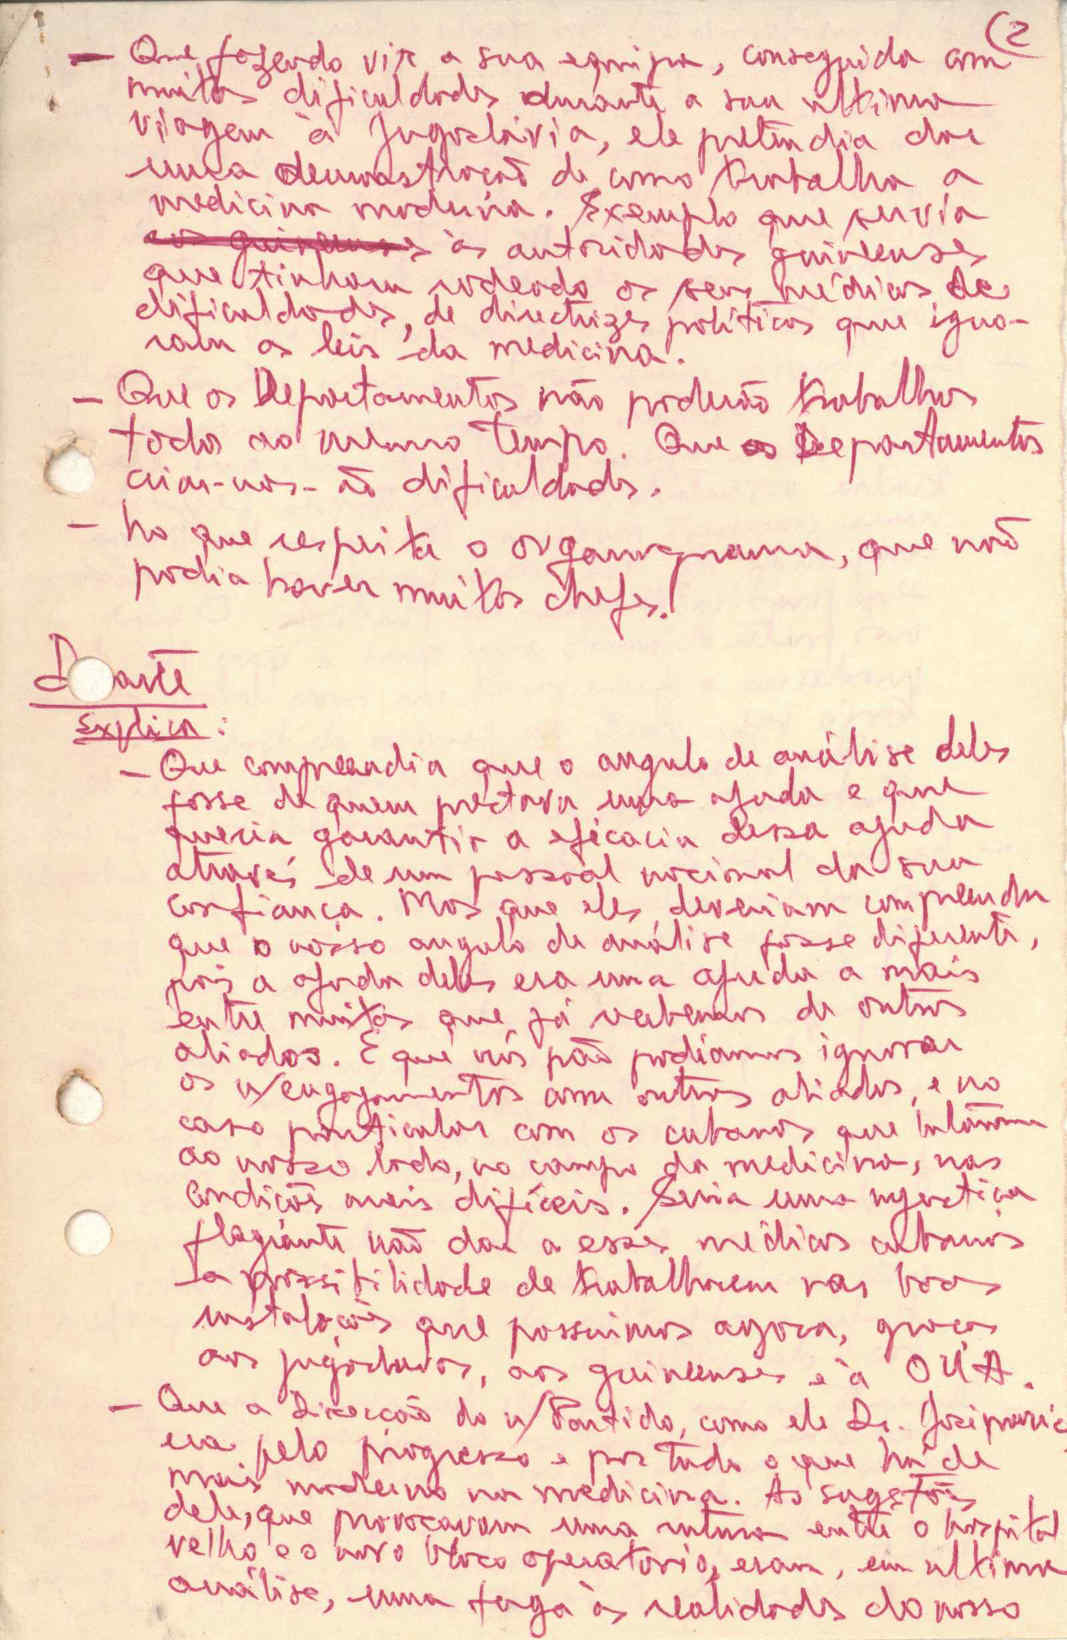 (2
- Que, fazendo vir a sua equipa, conseguida com
muitas dificuldades durante a sua ultima
viagem à Jugoslávia, ele pretendia dar
uma demonstração de como trabalha a
medicina moderna. Exemplo que servia
às autoridades guineenses
que tinham rodeado os seus médicos de
dificuldades, de directrizes políticas que igno-
ram as leis da medicina.
- Que os Departamentos não poderão trabalhar
todos ao mesmo tempo. Que os Departamentos
criar-nos-ão dificuldades.
- No que respeita o organograma, que não
podia haver muitos chefes!
D arte
explica:
- Que compreendia que o angulo de análise deles
fosse de quem prestava uma ajuda e que
queria garantir a eficacia dessa ajuda
através de um pessoal nacional da sua
confiança. Mas que eles deveriam compreender
que o nosso angulo de análise fosse diferente,
pois a ajuda deles era uma ajuda a mais
entre muitas que já recebemos de outros
aliados. E que nós não podíamos ignorar
os n/engajamentos com outros aliados, e no
caso particular com os cubanos que lutaram
ao nosso lado, no campo da medicina, nas
condições mais difíceis. Seria uma injustiça
flagrante não dar a esses médicos cubanos
a possibilidade de trabalharem nas boas
instalações que possuimos agora, graças
aos jugoslavos, aos guineenses e à OUA.
- Que a Direcção do n/Partido, como ele Dr.
era pelo progresso e por tudo o que há de
mais moderno na medicina. As sugestões
dele, que provocavam uma rutura entre o hospital
velho e o novo bloco operatorio, eram, em ultima
análise, uma fuga às realidades do nosso